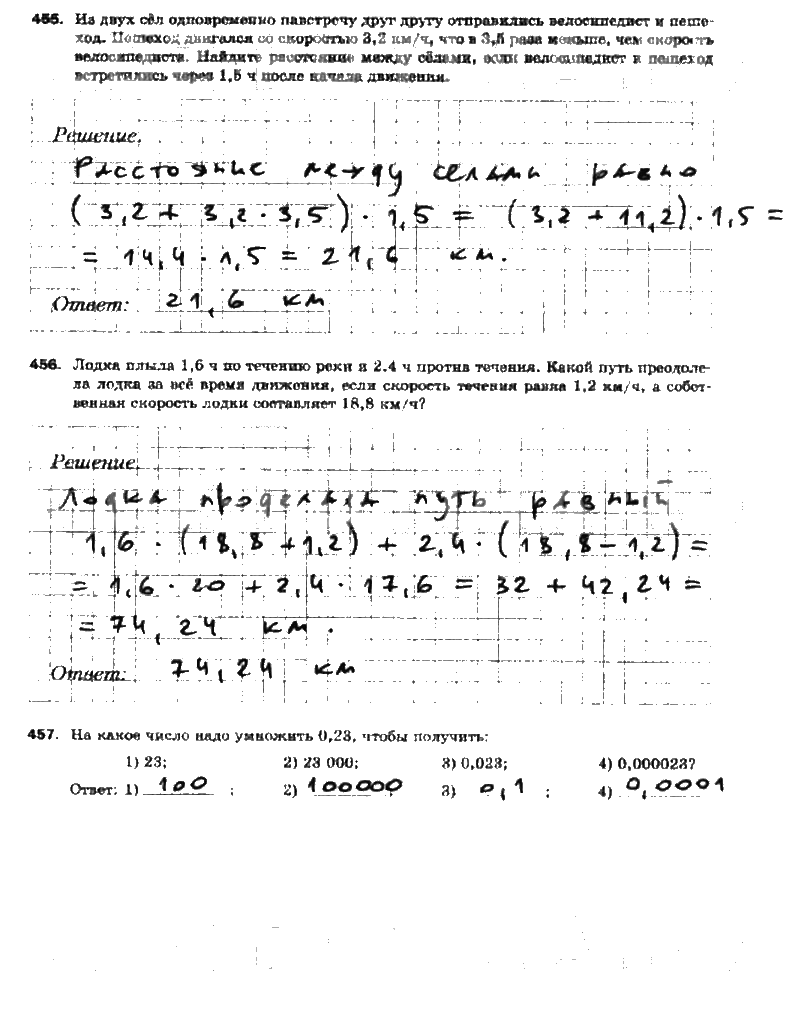 455. Из двух сёл одновременно навстречу друг другу отправились велосипедист и пеше-
ход. Пешеход двигался со скоростью 3,2 км/ч, что в 3,5 раза меньше, чем скорость
велосипедиста. Найдите расстояние между сёлами, если велосипедист и пешеход
встретились через 1,5 ч после начала движения.
Решение.
Расстояние между селами равно
(3,2 + 3,2 · 3,5) · 1,5 = (3,2 + 11,2) · 1,5 =
= 14,4 · 1,5 = 21,6 км.
Ответ: 21,6 км
456. Лодка плыла 1,6 ч по течению реки и 2,4 ч против течения. Какой путь преодоле-
ла лодка за всё время движения, если скорость течения равна 1,2 км/ч, а собст-
венная скорость лодки составляет 18,8 км/ч?
Решение.
Лодка проделала путь равный
1,6 · (18,8 + 1,2) + 2,4 · (18,8 – 1,2) =
= 1,6 · 20 + 2,4 · 17,6 = 32 + 42,24 =
= 74,24 км.
Ответ: 74,24 км
457. На какое число надо умножить 0,23, чтобы получить:
1) 23; 2) 23 000; 3) 0,023; 4) 0,000023?
Ответ: 1) 100 ; 2) 100000 3) 0,1 ; 4) 0,0001